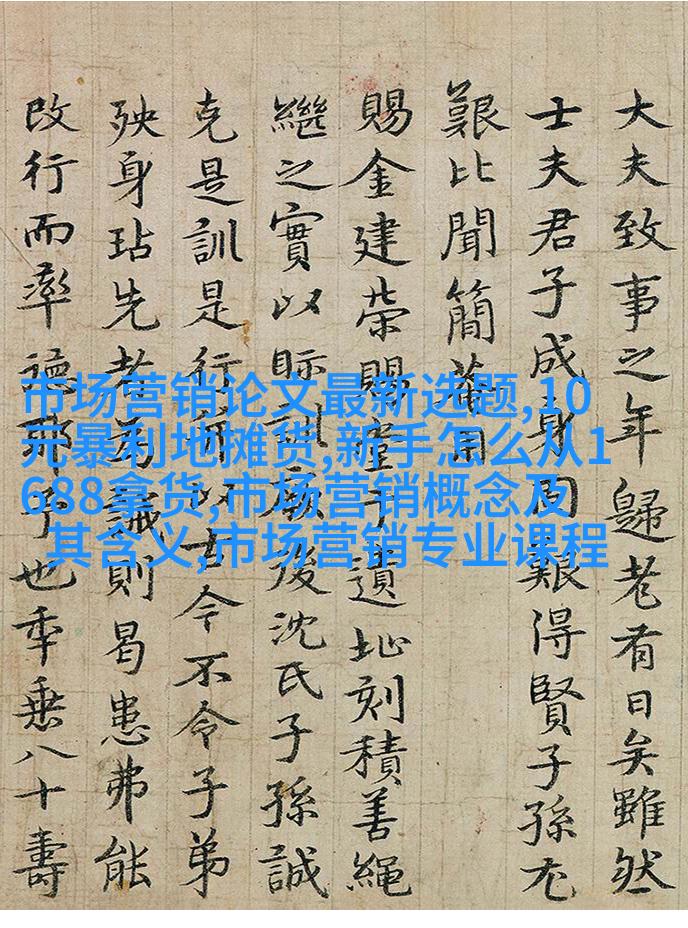 大夫致事之年歸老有日矣雖然
士夫君子成身固艱得賢子孫尤
艱比聞簡菴用
賜金建榮賜遺址刻積善繩
繼之實以眎訓族後沈氏子孫誠
克是訓是行所以古今不令子弟
殃身玷先者為誡則曷患弗能
改行而率德予也年乗八十壽
市场营销论文最新选题,10
元暴利地摊货,新手怎么从1
688拿货,市场营销概念及
其含义,市场营销专业课程